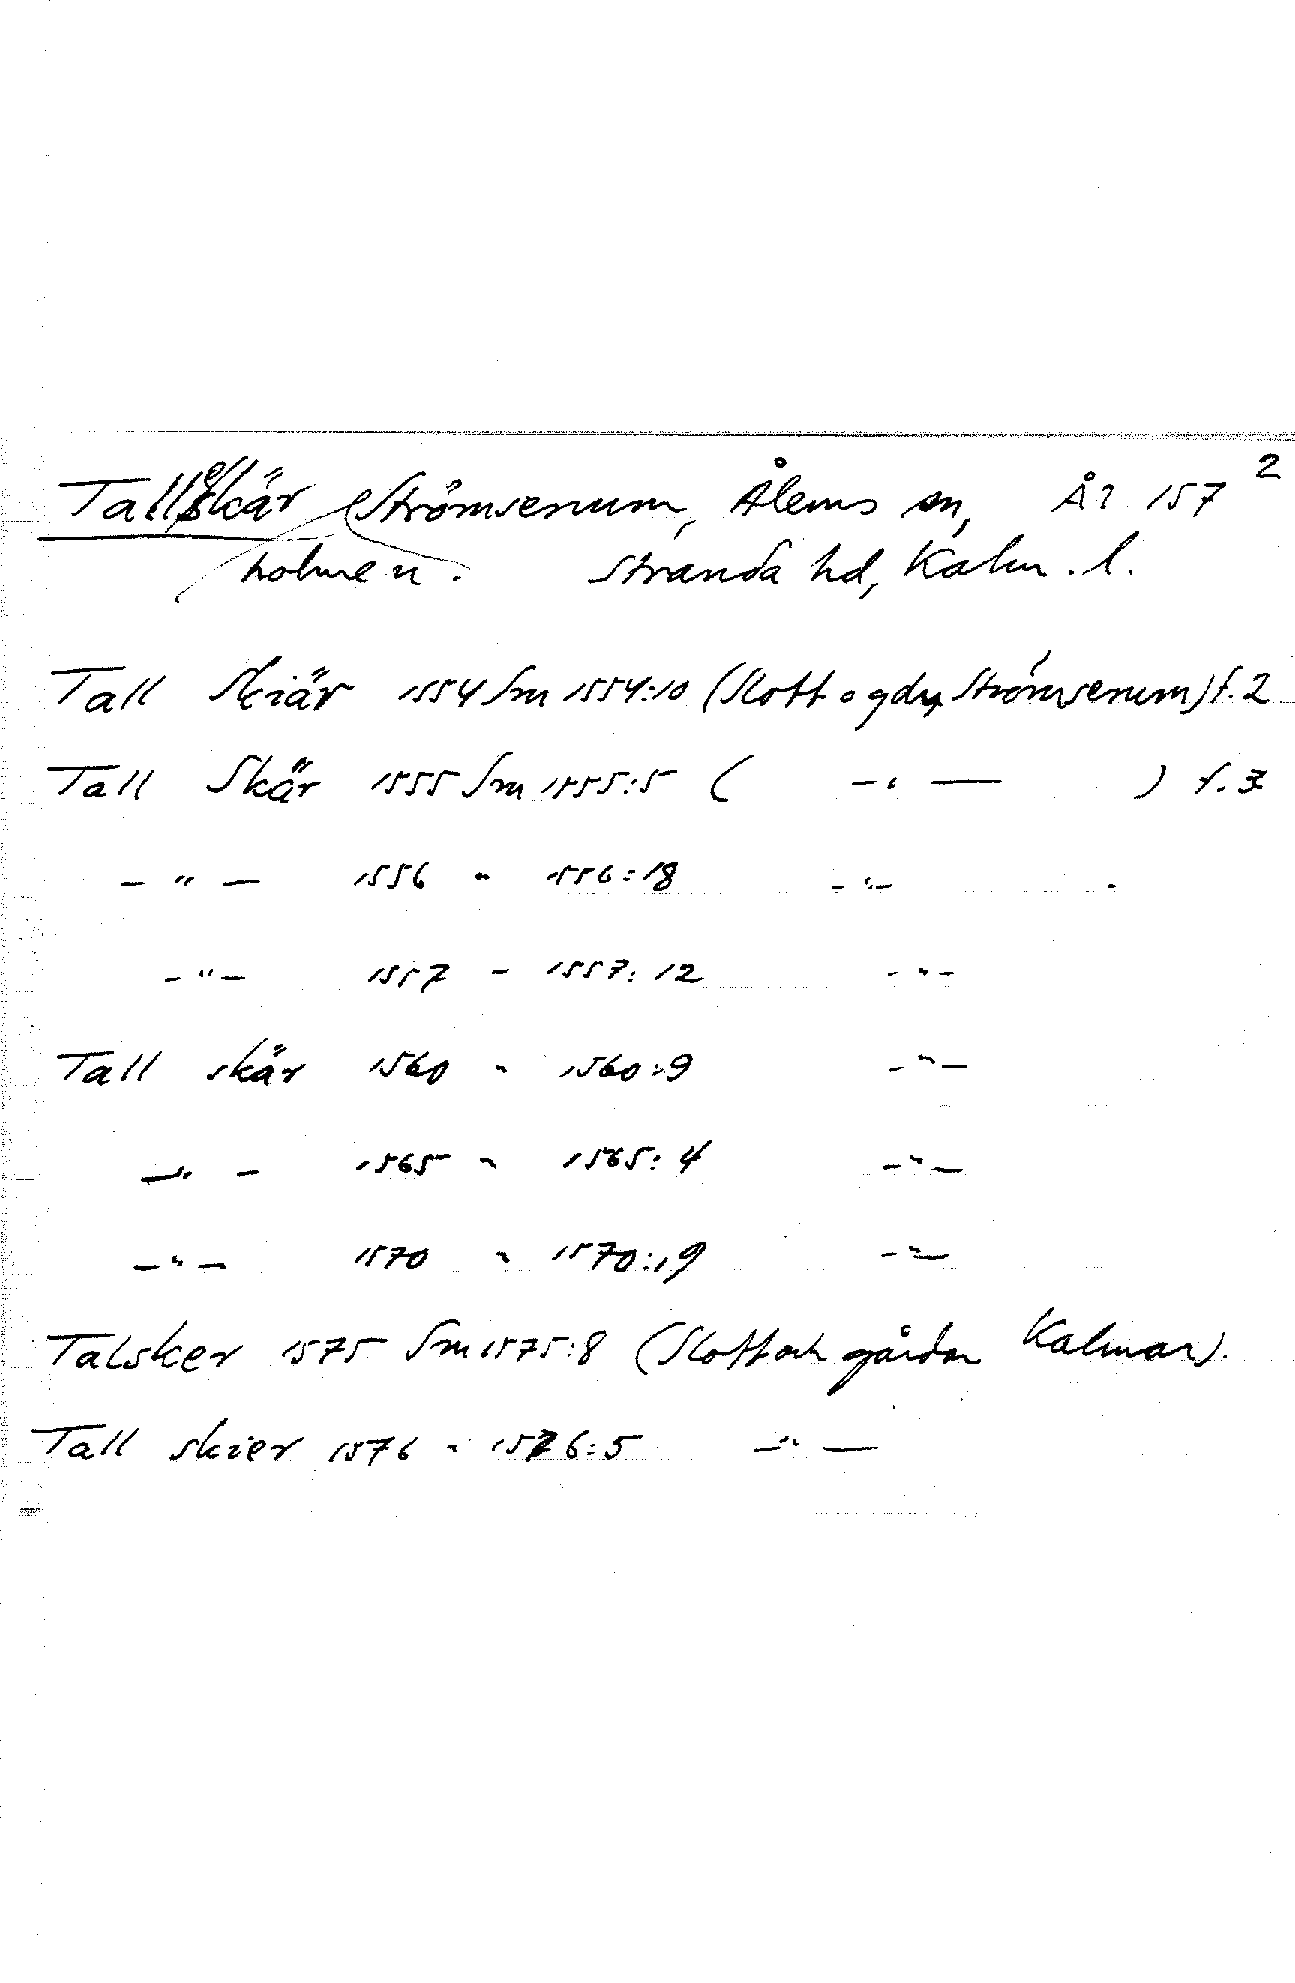 Tallskär Strömserum, Ålems sn, ÅR 157 2
holmen. Stranda hd, Kalm. l.
Tall Skiär 1554 Sm 1554:10 (Slott o gdr, Strömserum) f. 2
Tall Skär 1555 Sm 1555:5 ( -"- ) f. 3
-"- 1556 " 1556:18 -"-
-"- 1557 - 1557:12 -"-
Tall skär 1560 " 1560:9 -"-
-"- 1565 " 1565:4 -"-
-"- 1570 " 1570:19 -"-
Talsker 1575 Sm 1575:8 (Slott och gårdar Kalmar).
Tall skier 1576 " 1576:5 -"-